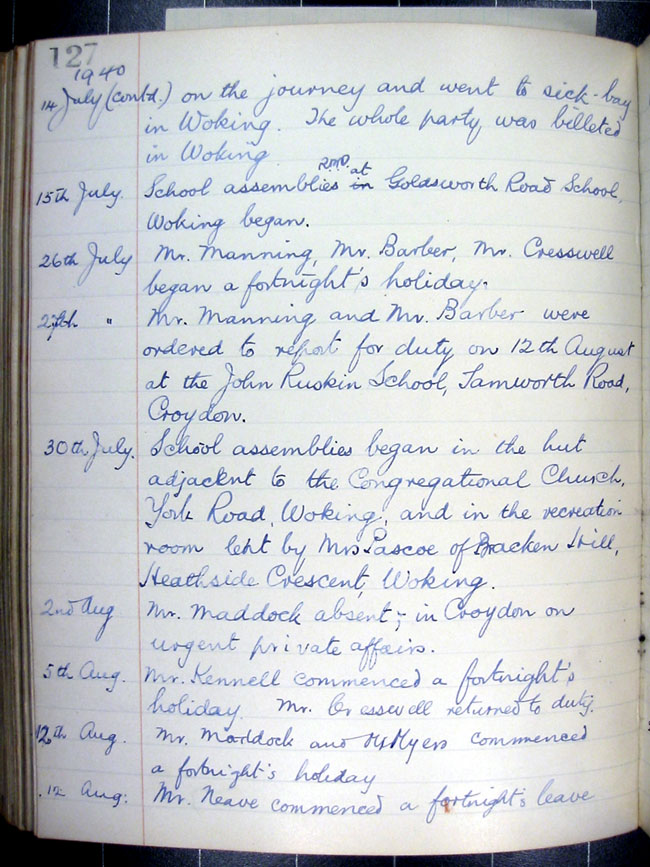 127
1940
14 July (contd.) on the journey and went to sick-bay
in Woking. The whole party was billeted
in Woking
15th July. School assemblies in at Goldsworth Road School,
Woking began.
26th July Mr. Manning, Mr. Barber, Mr. Cresswell
began a fortnight's holiday.
27th " Mr. Manning and Mr. Barber were
ordered to report for duty on 12th August
at the John Ruskin School, Tamworth Road,
Croydon.
30th July. School assemblies began in the hut
adjacent to the Congregational Church,
York Road, Woking, and in the recreation
room lent by Mrs Pascoe of Bracken Hill,
Heathside Crescent, Woking.
2nd Aug Mr. Maddock absent; - in Croydon on
urgent private affairs.
5th Aug. Mr. Kennell commenced a fortnight's
holiday. Mr. Cresswell returned to duty.
12th Aug. Mr. Maddock and Myers commenced
a fortnight's holiday
12 Aug: Mr. Neave commenced a fortnight's leave